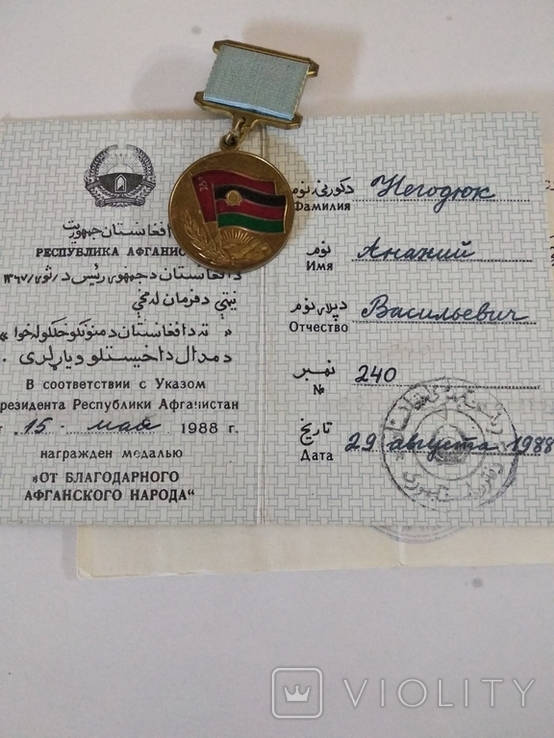 د افغانستان جمهوریت
РЕСПУБЛИКА АФГАНИС
د افغانستان د جمهوری رئیس د
د فرمان له مخې
« ته د افغانستان د
د مدال د اخیستلو ویاړلری .
В соответствии с Указом
резидента Республики Афганистан
15 мая 1988 г.
награжден медалью
„ОТ БЛАГОДАРНОГО
АФГАНСКОГО НАРОДА“
دکورنۍ نوم
Фамилия Негодюк
نوم
Имя Ананий
د پلار نوم
Отчество Васильевич
نمبر
№ 240
تاریخ
Дата 29 августа 1988
VIOLITY